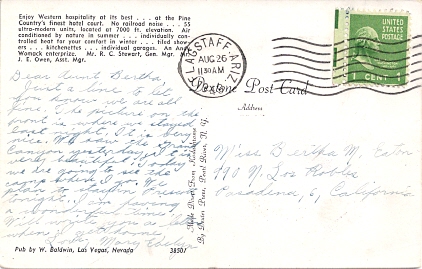 Enjoy Western hospitality at its best . . . at the Pine
Country's finest hotel court. No railroad noise . . . 55
ultra-modern units, located at 7000 ft. elevation. Air
conditioned by nature in summer . . . individually con-
trolled heat for your comfort in winter . . . tiled show-
ers . . . kitchenettes . . . individual garages. An
Womack enterprize. Mr. R. C. Stewart, Gen. Mgr.
J. E. Owen, Asst. Mgr.
FLAGSTAFF ARIZ.
AUG 26
11 30 AM
UNITED STATES
POSTAGE
1 CENT 1
Post Card
Address
Dear Aunt Bertha,
Just a line to let
you know we are all
The picture on the
front is where we stayed
last night. It is very
nice. We saw the Grand
Canyon yesterday. It is
very beautiful. Today
we are going to see the
We
to stay in
tonight. I am having
a wonderful time.
Will
when I get home.
Love, Mary
Miss Bertha M. Eaton
990 N. Los Robles
Pasadena, 6, California
Made Direct from Kodachrome
By Dexter Press, Pearl River, N. Y.
Pub by W. Baldwin, Las Vegas, Nevada
38507